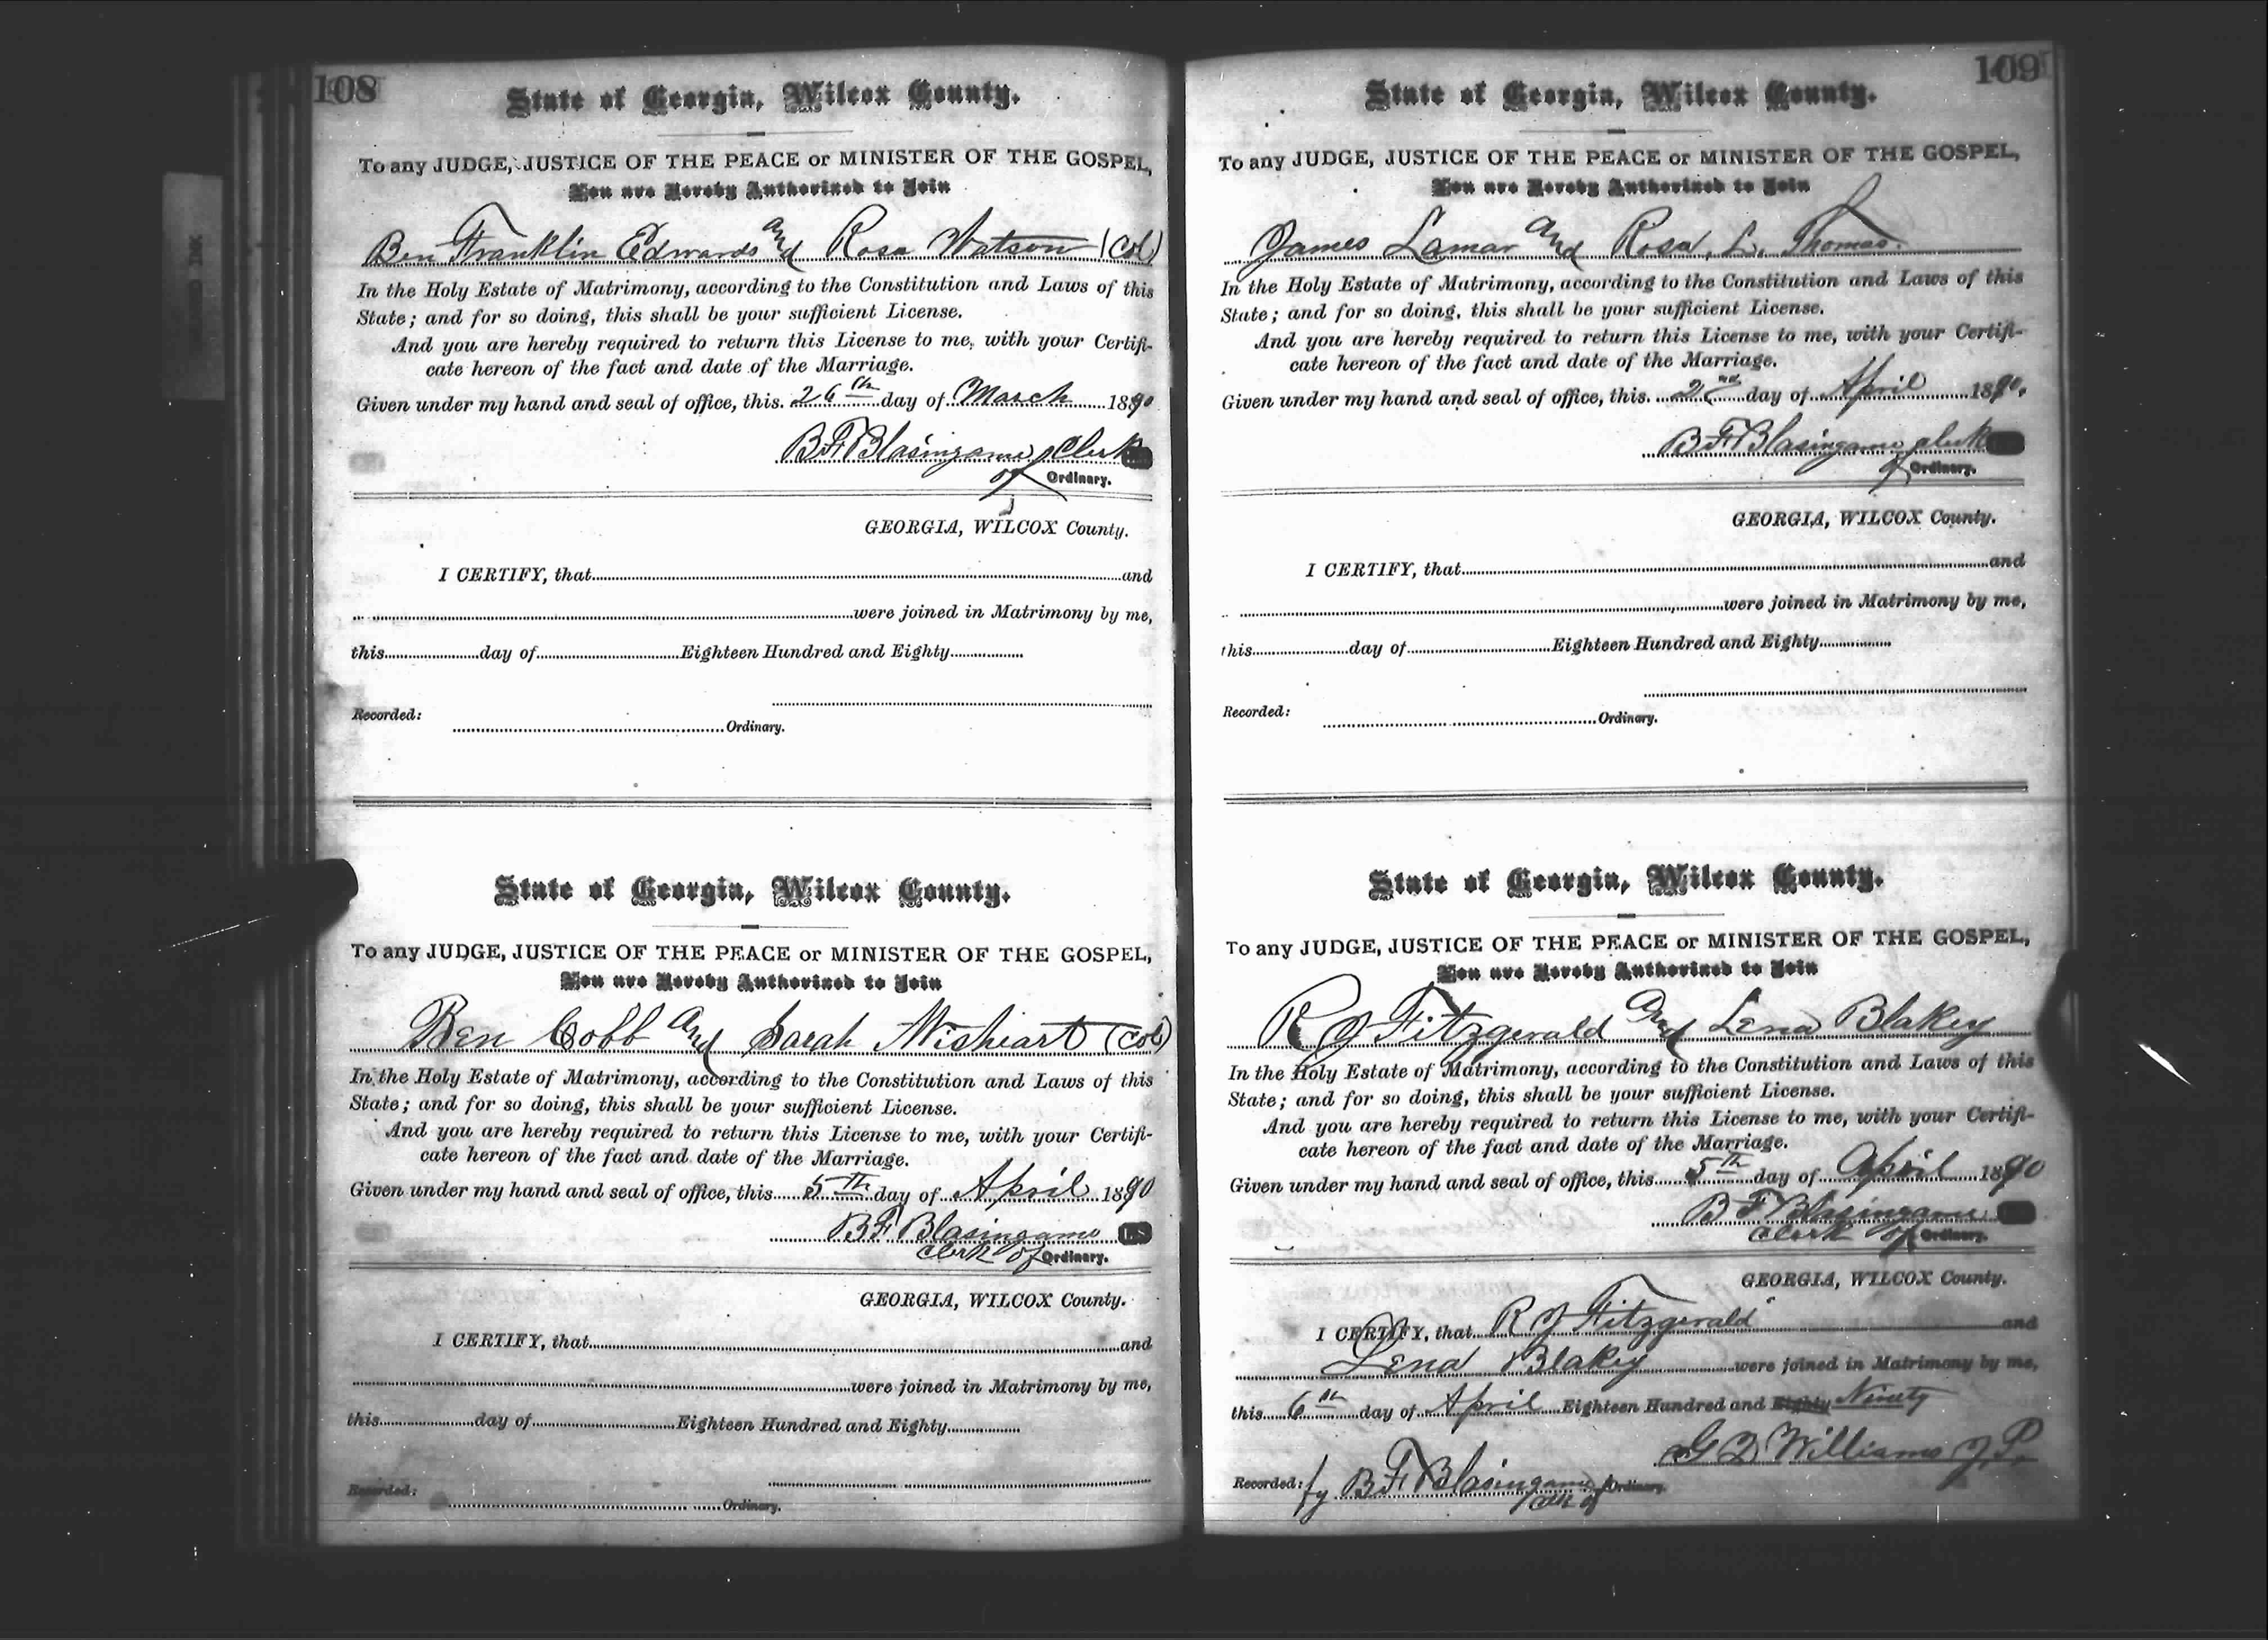 108
State of Georgia, Wilcox County.
To any JUDGE, JUSTICE OF THE PEACE or MINISTER OF THE GOSPEL,
You are Hereby Authorized to Join
Ben Franklin Edwards and Rosa Watson (Col)
In the Holy Estate of Matrimony, according to the Constitution and Laws of this
State; and for so doing, this shall be your sufficient License.
And you are hereby required to return this License to me, with your Certifi-
cate hereon of the fact and date of the Marriage.
Given under my hand and seal of office, this 26th day of March 1890
B F Blasingame Clerk
of Ordinary.
GEORGIA, WILCOX County.
I CERTIFY, that and
were joined in Matrimony by me,
this day of Eighteen Hundred and Eighty
Recorded:
Ordinary.
State of Georgia, Wilcox County.
To any JUDGE, JUSTICE OF THE PEACE or MINISTER OF THE GOSPEL,
You are Hereby Authorized to Join
Ben Cobb and Sarah Wisheart (Col)
In the Holy Estate of Matrimony, according to the Constitution and Laws of this
State; and for so doing, this shall be your sufficient License.
And you are hereby required to return this License to me, with your Certifi-
cate hereon of the fact and date of the Marriage.
Given under my hand and seal of office, this 5th day of April 1890
B F Blasingame LS
Clerk of Ordinary.
GEORGIA, WILCOX County.
I CERTIFY, that and
were joined in Matrimony by me,
this day of Eighteen Hundred and Eighty
Recorded:
Ordinary.
109
State of Georgia, Wilcox County.
To any JUDGE, JUSTICE OF THE PEACE or MINISTER OF THE GOSPEL,
You are Hereby Authorized to Join
James Lamar and Rosa L. Thomas.
In the Holy Estate of Matrimony, according to the Constitution and Laws of this
State; and for so doing, this shall be your sufficient License.
And you are hereby required to return this License to me, with your Certifi-
cate hereon of the fact and date of the Marriage.
Given under my hand and seal of office, this 2nd day of April 1890.
B F Blasingame Clerk
of Ordinary.
GEORGIA, WILCOX County.
I CERTIFY, that and
were joined in Matrimony by me,
this day of Eighteen Hundred and Eighty
Recorded:
Ordinary.
State of Georgia, Wilcox County.
To any JUDGE, JUSTICE OF THE PEACE or MINISTER OF THE GOSPEL,
You are Hereby Authorized to Join
R J Fitzgerald and Lena Blakey
In the Holy Estate of Matrimony, according to the Constitution and Laws of this
State; and for so doing, this shall be your sufficient License.
And you are hereby required to return this License to me, with your Certifi-
cate hereon of the fact and date of the Marriage.
Given under my hand and seal of office, this 5th day of April 1890
B F Blasingame
Clerk of Ordinary.
GEORGIA, WILCOX County.
I CERTIFY, that R J Fitzgerald and
Lena Blakey were joined in Matrimony by me,
this 6th day of April Eighteen Hundred and Eighty Ninety
G D Williams J.P.
Recorded: by B F Blasingame
Clk of Ordinary.